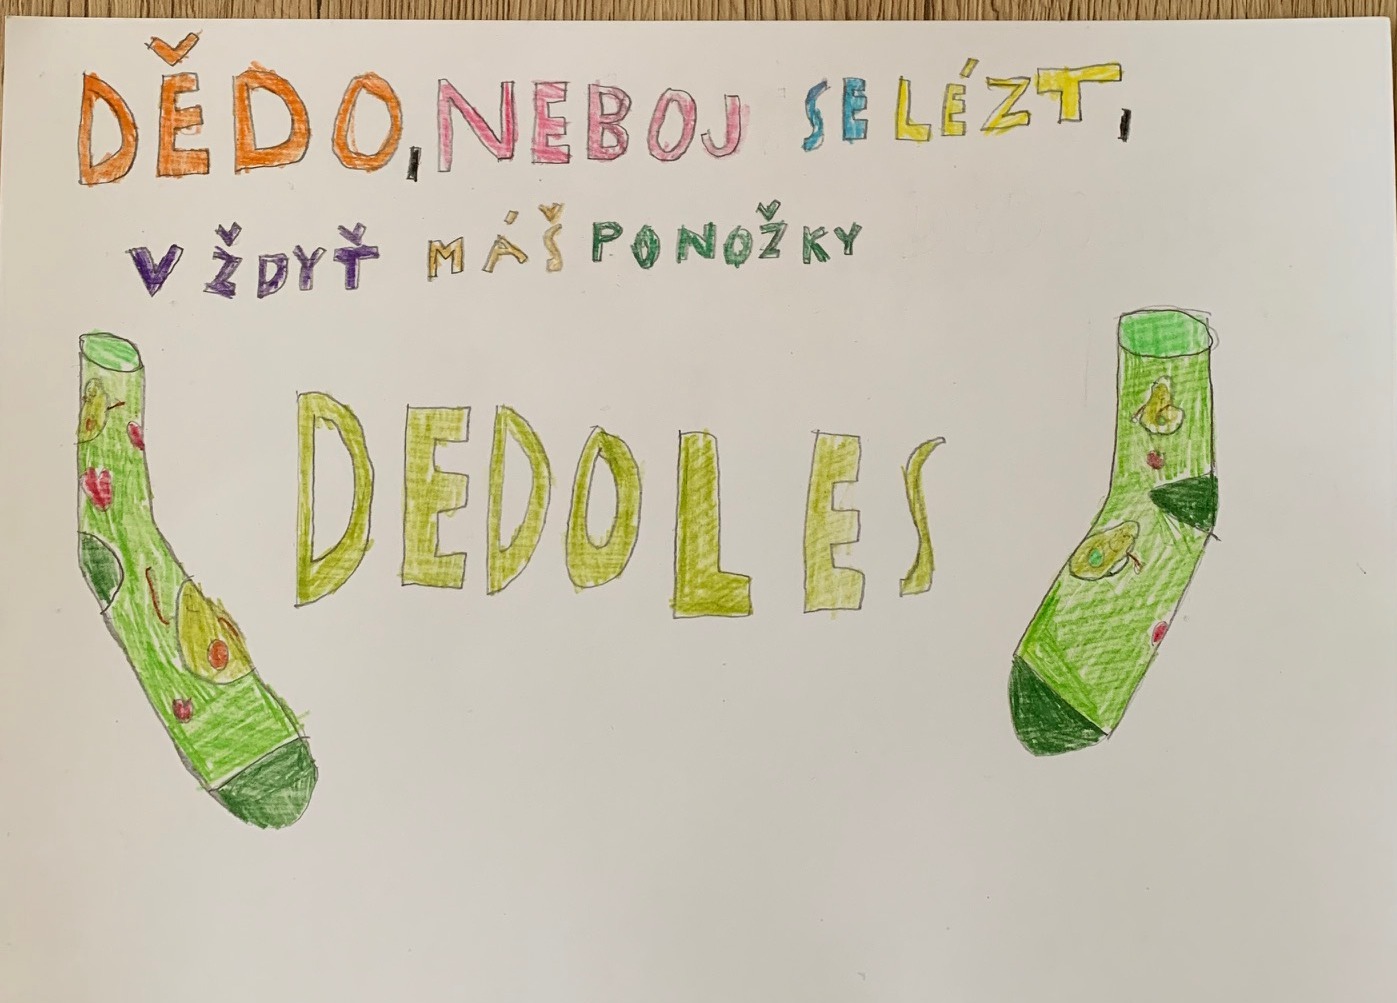 DĚDO, NEBOJ SE LÉZT,
VŽDYŤ MÁŠ PONOŽKY
DEDOLES